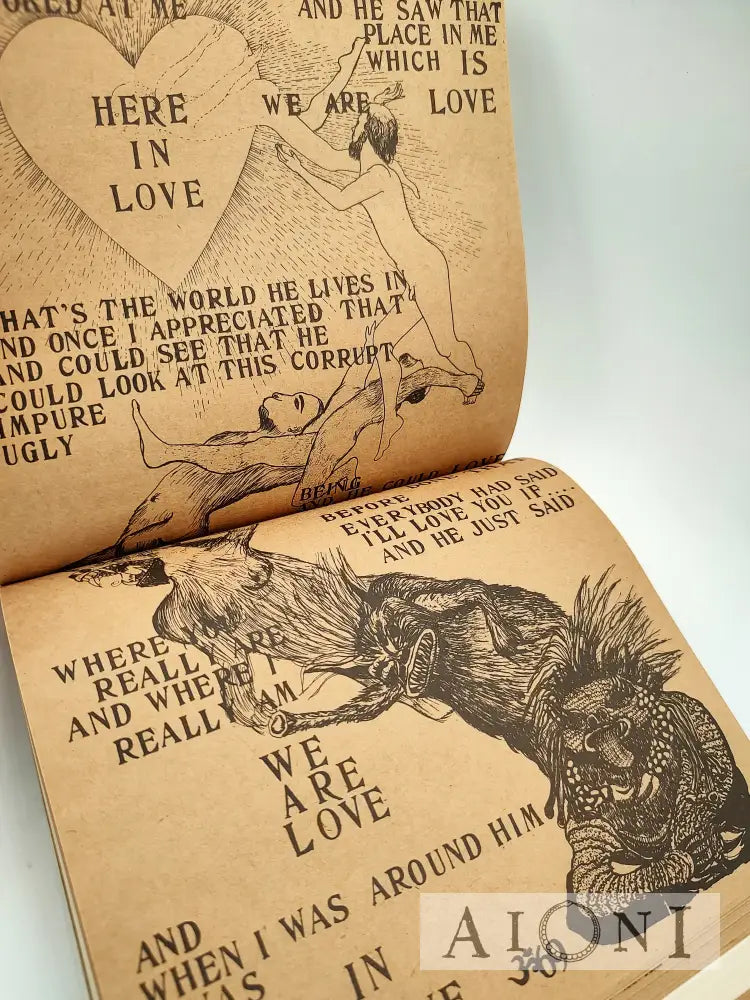 AT ME
AND HE SAW THAT
PLACE IN ME
WHICH IS
HERE
IN
LOVE
WE ARE LOVE
THE WORLD HE LIVES IN
ONCE I APPRECIATED THAT
AND COULD SEE THAT HE
COULD LOOK AT THIS CORRUPT
IMPURE
UGLY
BEING
AND HE COULD LOVE
BEFORE
EVERYBODY HAD SAID
I'LL LOVE YOU IF....
AND HE JUST SAID
WHERE YOU
REALLY ARE
AND WHERE I
REALLY AM
WE
ARE
LOVE
AND
WHEN I WAS AROUND HIM
IN
AIONI